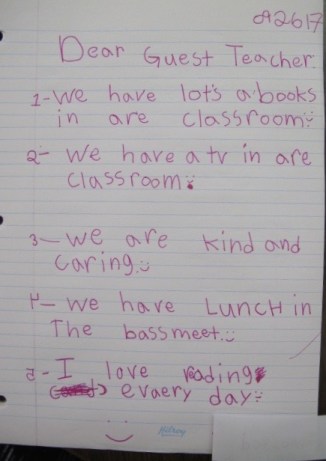 092617
Dear Guest Teacher
1- We have lot's a books
in are classroom
2- We have a tv in are
classroom.
3- we are kind and
caring.
4- we have LUNCH in
The bassmeet.
5- I love rading
evaery day